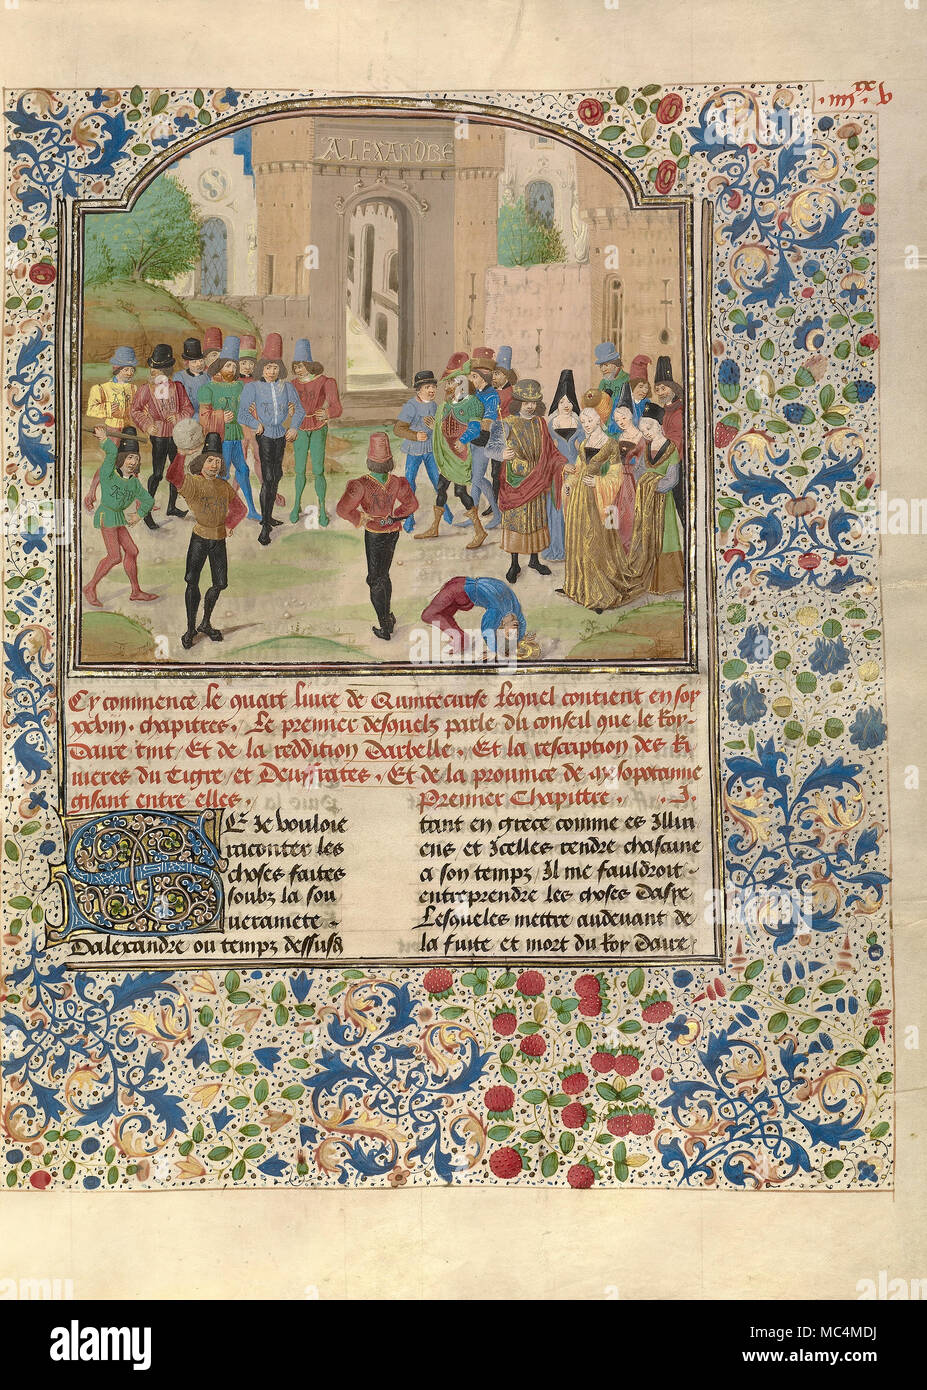 .iiii.xx b
ALEXANDRE
Cy commence le quart liure de Quintecurse lequel contient en soy
xxbiii. chapitres. Le premier desquelz parle du conseil que le Roy
Daire tint / Et de la reddition Darbelle. Et la rescription des Ri
uieres du Tigre / et Deuffrates. Et de la prouince de mesopotamie
gisant entre elles.
Premier Chapittre. .I.
SE Je bouloie
raconter les
choses faites
soubz la sou
ueraineté
Dalexandre ou temps dessusd
tant en grece comme es Illiri
ens et Icelles rendre chascune
a son temps Il me fauldroit
entreprendre les choses Dasye
Lesqueles mettre audeuant de
la fuite et mort du Roy Daire
alamy
Image ID: MC4MDJ
www.alamy.com